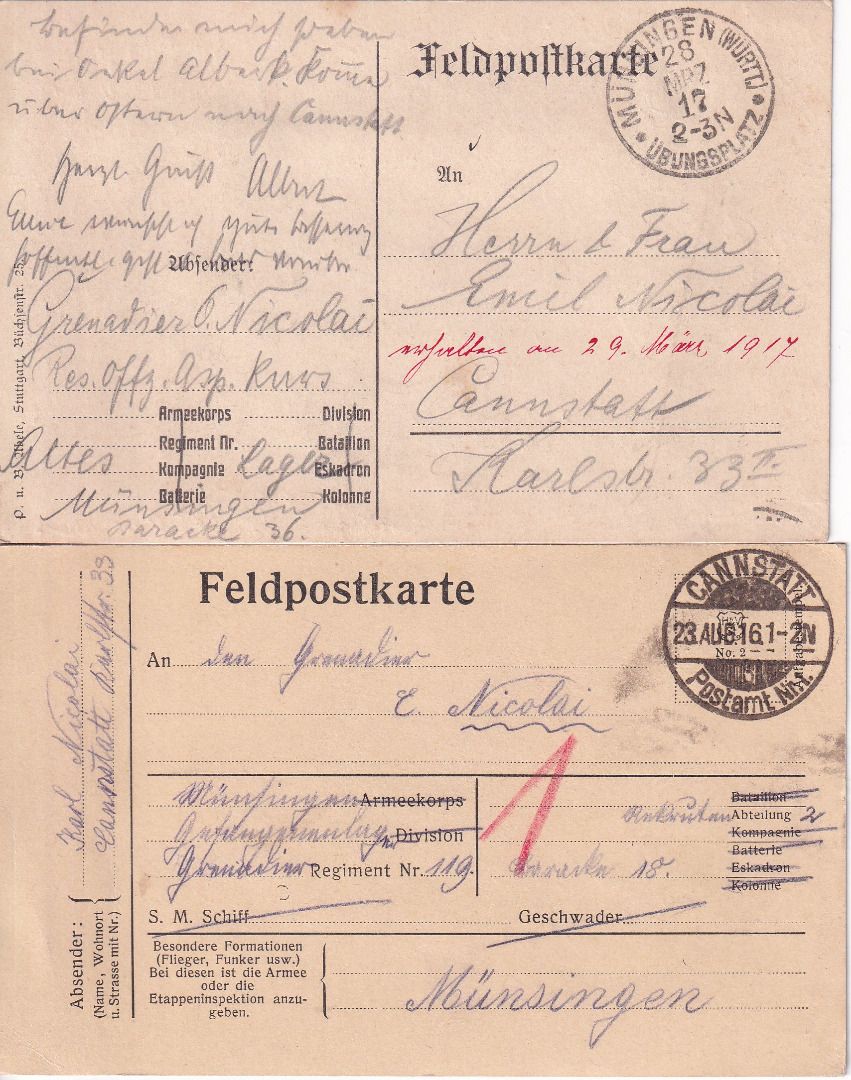 Befinde mich soeben
bei Onkel Albert. Komme
über Ostern nach Cannstatt
Herzl. Gruß Albert
gute Besserung
Absender:
Grenadier Nicolai
Res. Offz. Asp. Kurs
Armeekorps Division
Regiment Nr. Bataillon
Altes Lager
Kompagnie Eskadron
Batterie Kolonne
Münsingen
Baracke 36.
Stuttgart, Büchsenstr.
Feldpostkarte
MÜNSINGEN (WÜRTT.)
28
MRZ
17
2-3N
ÜBUNGSPLATZ
An
Herrn & Frau
Emil Nicolai
erhalten am 29. März 1917
Cannstatt
Karlstr. 33 II.
Feldpostkarte
CANNSTATT
23.AUG.16.1-2N
Postamt Nr.1.
No. 2
An den Grenadier
E. Nicolai
Münsingen Armeekorps
Gefangenenlager Division
Grenadier Regiment Nr. 119.
1
Bataillon
Rekruten Abteilung 2
Kompagnie
Batterie
Baracke 18.
Eskadron
Kolonne
S. M. Schiff
Geschwader
Besondere Formationen
(Flieger, Funker usw.)
Bei diesen ist die Armee
oder die
Etappeninspektion anzu-
geben.
Münsingen
Absender:
(Name, Wohnort
u. Strasse mit Nr.)
Karl Nicolai
Cannstatt Karlstr. 33